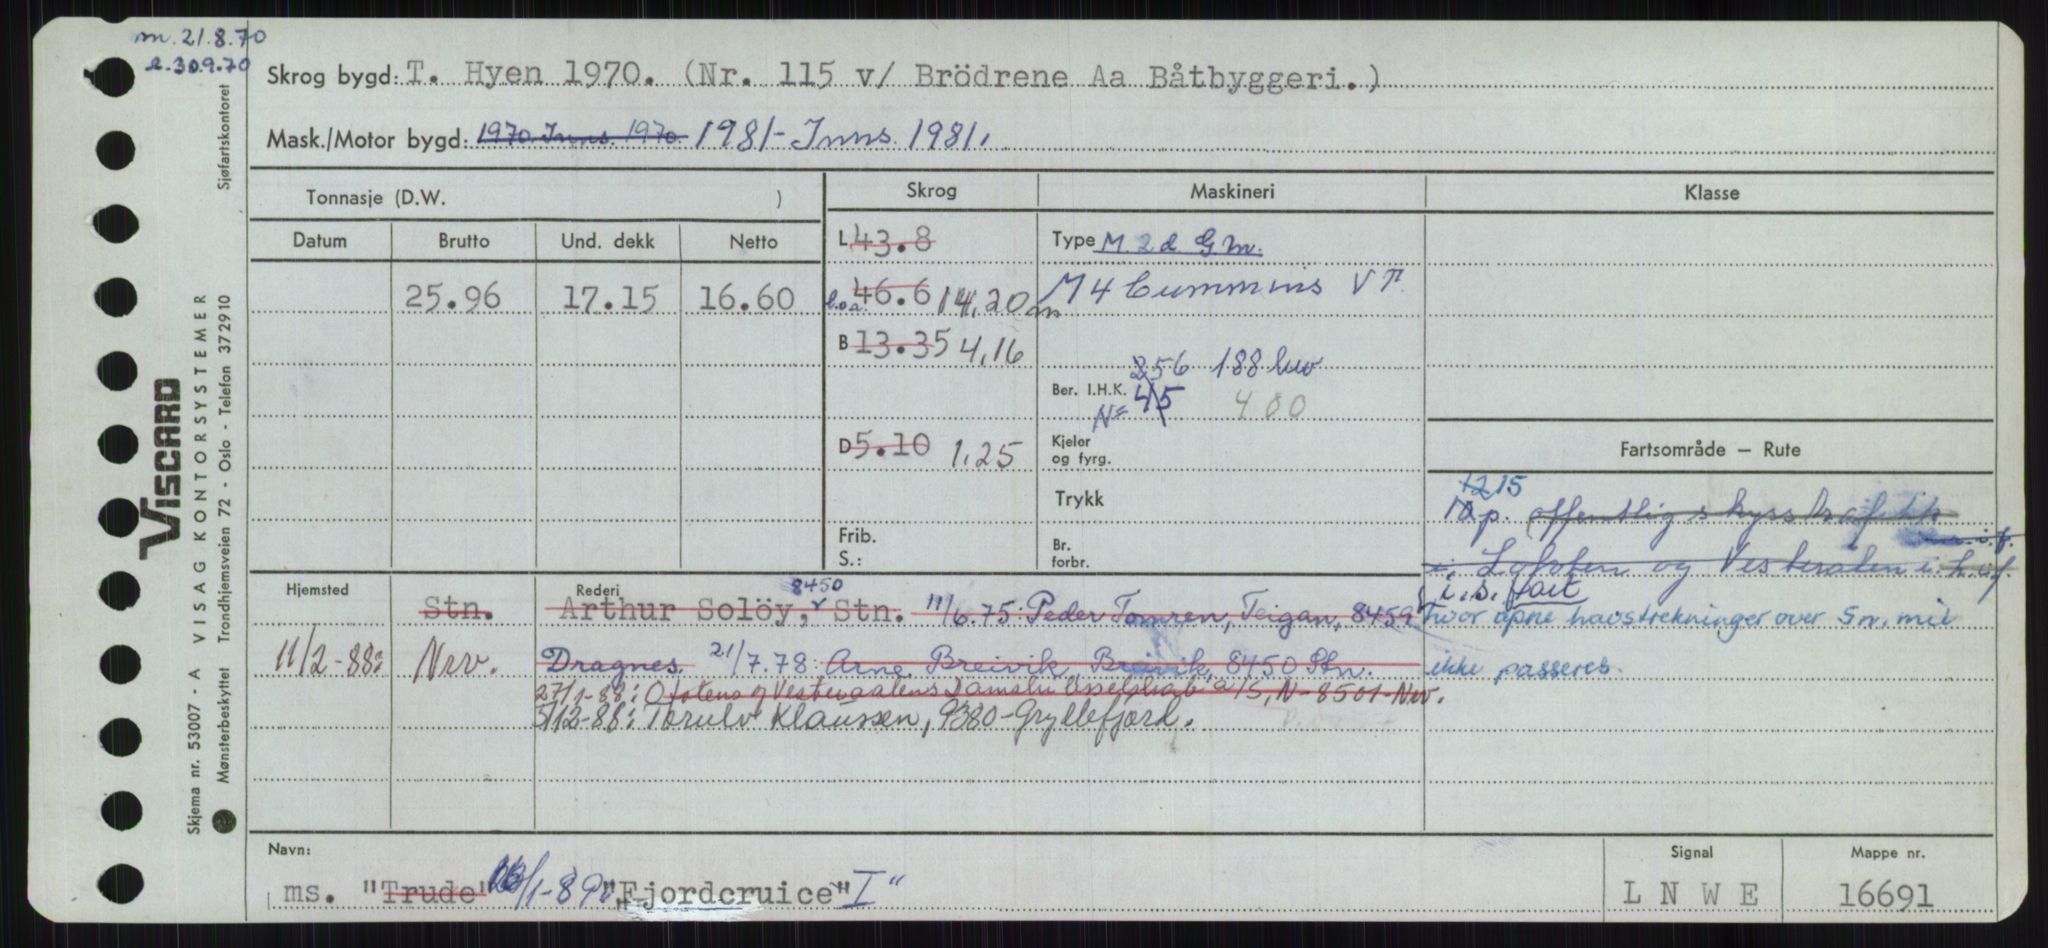 m. 21.8.70
r. 30.9.70
Skrog bygd: T. Hyen 1970. (Nr. 115 v/ Brödrene Aa Båtbyggeri.)
Mask./Motor bygd: 1970. Inns. 1970. 1981 - Inns. 1981.
Tonnasje (D.W. )
Skrog
Maskineri
Klasse
Datum Brutto Und. dekk Netto
25.96 17.15 16.60
L 43.8
l.o.a. 46.6 14.20 m
B 13.35 4,16
D 5.10 1,25
Frib.
S.:
Type M. 2 d. G.M.
M 4 Cummins VT.
256 188 kw
Ber. I.H.K. 45 400
N=
Kjeler
og fyrg.
Trykk
Br.
forbr.
Fartsområde – Rute
12 15
10 p. offentlig skysstrafikk
i Lofoten og Vesterålen i.
i.s. fart
hvor åpne havstrekninger over 5 n. mil
ikke passeres.
Hjemsted
Stn.
11/2-88: Nrv.
Rederi
Arthur Solöy, 8450 Stn. 11/6.75: Peder Tomren, Teigan, 8459
Dragnes. 21/7.78: Arne Breivik, Breivik, 8450 Stn.
27/1-88: Ofotens og Vesteraalens Dampskibsselskab a/s, N-8501-Nrv.
5/12-88: Torulv Klaussen, 9380-Gryllefjord.
Navn:
ms. "Trude" /1-89 "Fjordcruice" I"
Signal
L N W E
Mappe nr.
16691
VISCARD
VISAG KONTORSYSTEMER
Skjema nr. 53007 - A
Sjøfartskontoret
Mønsterbeskyttet Trondhjemsveien 72 - Oslo - Telefon 372910